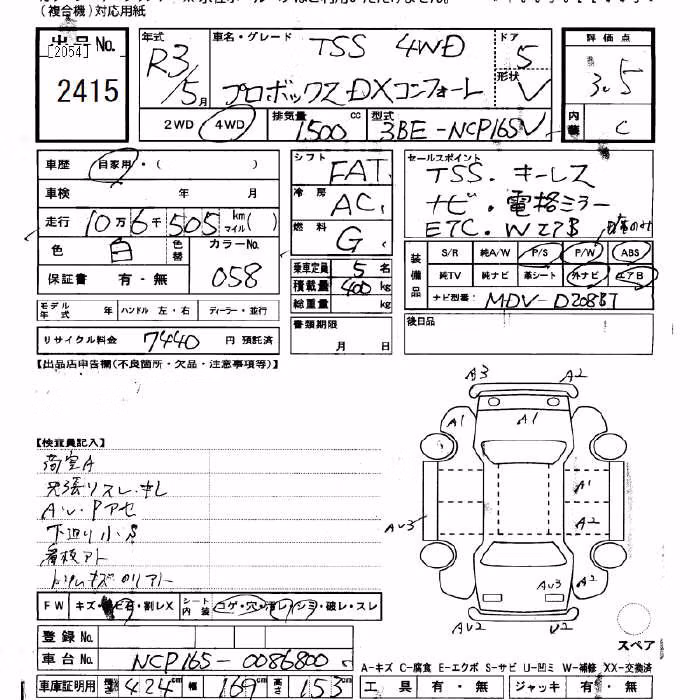 (複合機)対応用紙
出品No.
[2054]
2415
年式 R3/5月
車名・グレード TSS 4WD
プロボックスDXコンフォート
ドア 5
形状 V
2WD 4WD
排気量 1500 cc
型式 3BE-NCP165V
評価点 3.5
内装 C
車歴 自家用・( )
車検 年 月
走行 10万6千505 km マイル( )
色 白 色替 カラーNo. 058
保証書 有・無
シフト FAT
冷房 AC
燃料 G
乗車定員 5名
積載量 400 kg
総重量 kg
書類期限 月 日
セールスポイント
TSS・キーレス
ナビ・電格ミラー
ETC・WエアB
装備品 S/R 純A/W P/S P/W ABS
純TV 純ナビ 革シート 外ナビ エアB
ナビ型番: MDV-D208BT
後日品
モデル年式 年 ハンドル 左・右 ディーラー・並行
リサイクル料金 7440 円 預託済
【出品店申告欄(不良箇所・欠品・注意事項等)】
【検査員記入】
荷室A
Av・Pアセ
下廻り小S
看板アト
F W キズ・石・割レX シート内装 コゲ・穴・シミ・破レ・スレ
登録No.
車台No. NCP165-0086800
車庫証明用 長さ 424 cm 幅 169 cm 高さ 153 cm
A3 A2
A1
A1
AV3 A2
AV3 A2
AV2 U2
スペア
A-キズ C-腐食 E-エクボ S-サビ U-凹ミ W-補修 XX-交換済
工具 有・無 ジャッキ 有・無